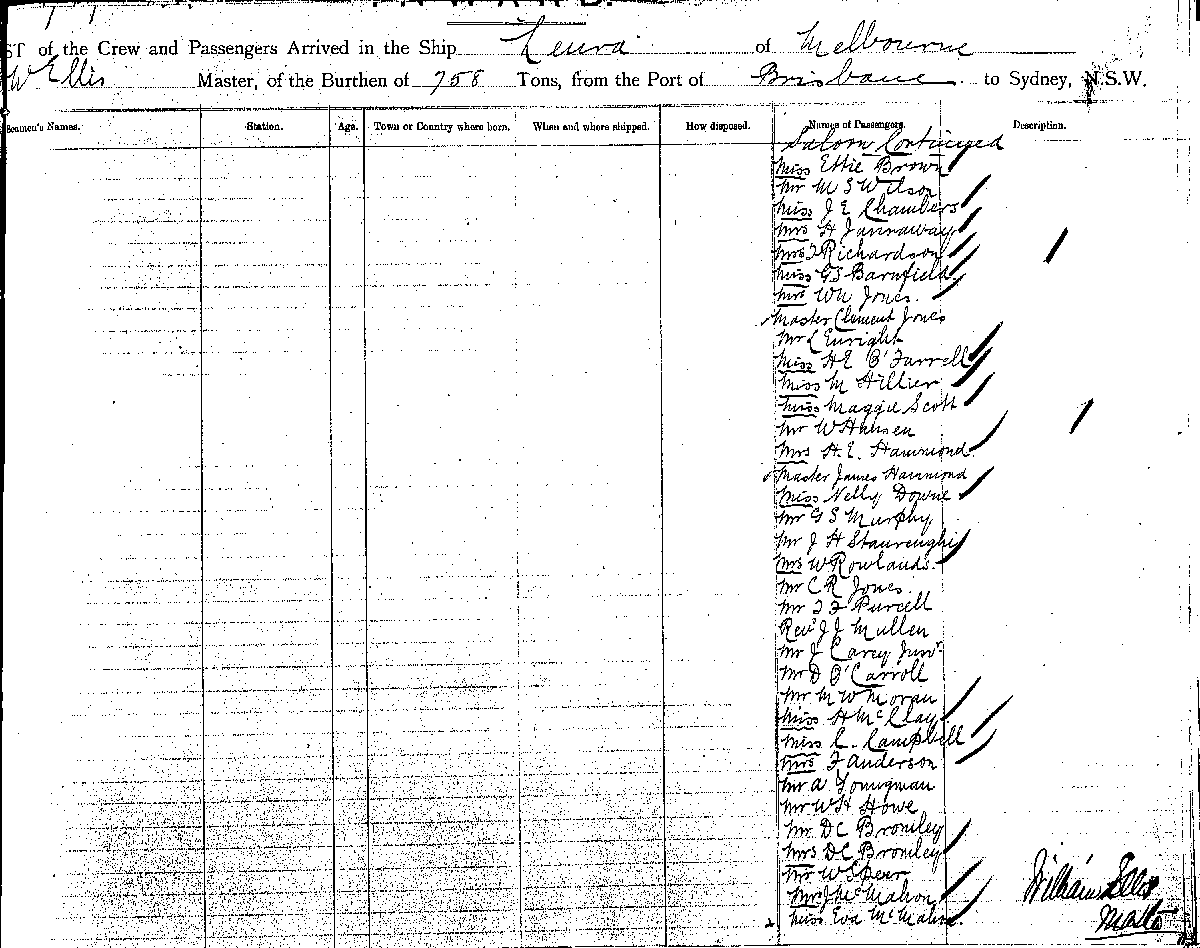 ST of the Crew and Passengers Arrived in the Ship Leura of Melbourne
W Ellis Master, of the Burthen of 758 Tons, from the Port of Brisbane to Sydney, N.S.W.
Seamen's Names. Station. Age. Town or Country where born. When and where shipped. How disposed. Names of Passengers. Description.
Saloon Continued
Miss Ettie Brown
Mr M S Wilson
Miss J E Chambers
Mrs H Jannaway
Mrs Richardson
Miss G S Barnfield
Mrs Wm Jones
Master Clement Jones
Mr L Enright
Miss H E O'Farrell
Miss M Hillier
Miss Maggie Scott
Mr W Hansen
Mrs H. E. Hammond
Master James Hammond
Miss Nelly Downe
Mr G S Murphy
Mr J H
Mrs W Rowlands
Mr C R Jones
Mr Purcell
Revd J J Mullen
Mr J Carey Junr
Mr D O'Carroll
Mr M W Moran
Miss H McClay
Miss C. Campbell
Mrs F Anderson
Mr A Youngman
Mr W H Howe
Mr D C Bromley
Mrs D C Bromley
Mr W Speer
Mrs J McMahon
Miss Eva McMahon
William Ellis